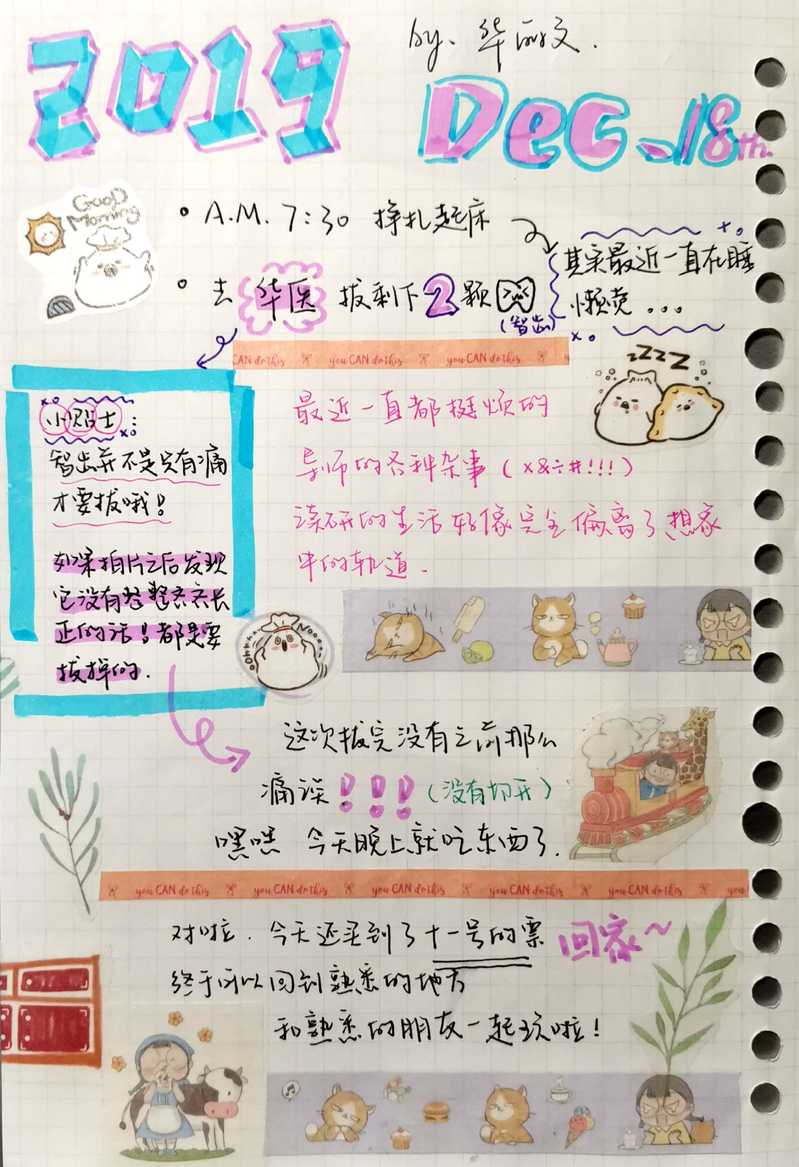 by. 华丽文.
2019 Dec. 18th.
GOOD Morning
• A.M. 7:30 挣扎起床
其实最近一直在睡
懒觉...
• 去 华医 拔剩下 2 颗
(智齿)
you CAN do this you CAN do this you CAN do this
zzzz
小贴士:
智齿并不是只有痛
才要拔哦!
如果拍片之后发现
它没有整整齐齐长
正的话!都是要
拔掉的.
最近一直都挺烦的
导师的各种杂事(x&÷#!!!)
读研的生活好像完全偏离了想象
中的轨道.
Ohhhh Nooooo
这次拔完没有之前那么
痛诶!!!(没有切开)
嘿嘿 今天晚上就吃东西了.
you CAN do this you CAN do this you CAN do this you CAN do this you CAN do this you
对啦.今天还买到了十一号的票 回家~
终于可以回到熟悉的地方
和熟悉的朋友一起玩啦!